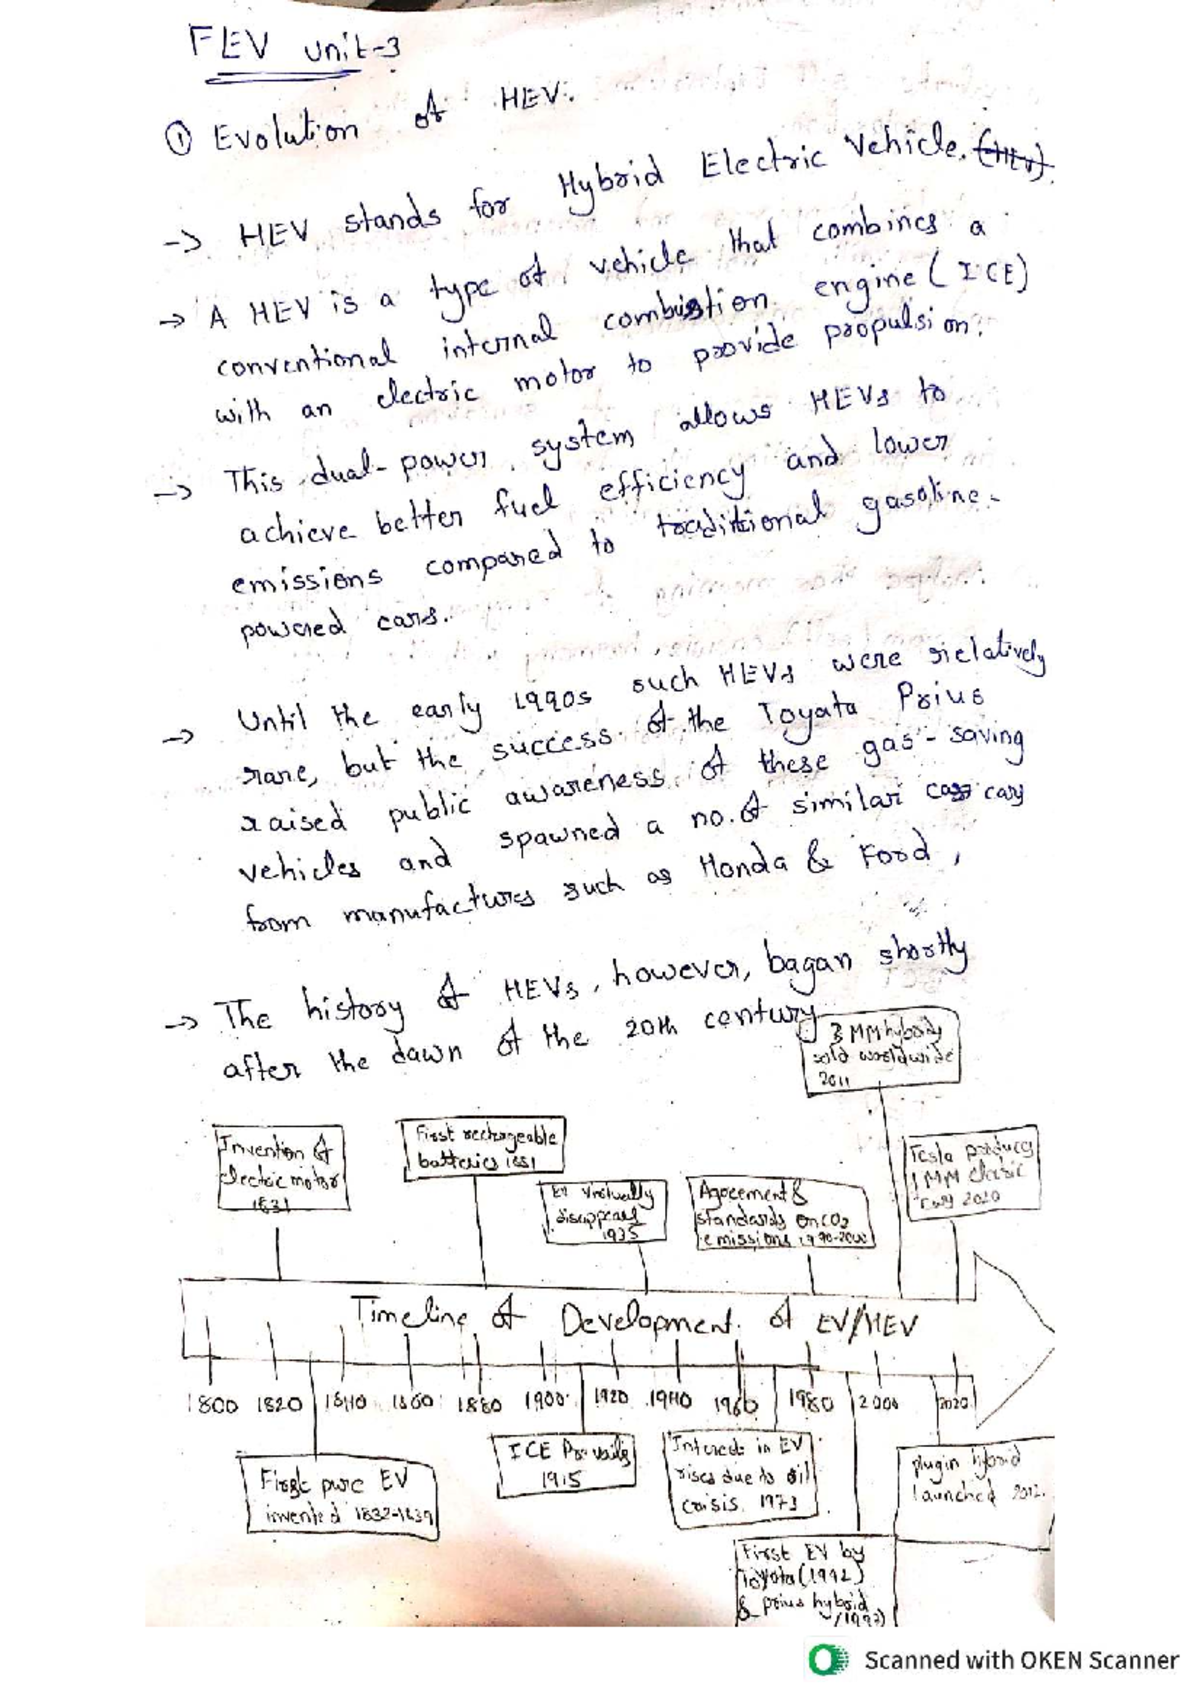 FEV unit-3
① Evolution of HEV:
→ HEV stands for Hybrid Electric Vehicle. (HEV).
→ A HEV is a type of vehicle that combines a
conventional internal combustion engine (ICE)
with an electric motor to provide propulsion.
→ This dual-power system allows HEVs to
achieve better fuel efficiency and lower
emissions compared to traditional gasoline-
powered cars.
→ Until the early 1990s such HEVs were relatively
rare, but the success of the Toyata Prius
raised public awareness of these gas-saving
vehicles and spawned a no. of similar cars
from manufactures such as Honda & Ford,
→ The history of HEVs, however, bagan shortly
after the dawn of the 20th century
3 MM hybrids
sold worldwide
2011
Invention of
electric motor
1831
First rechargeable
batteries 1881
EV Virtually
disappears
1935
Agreement &
standards on CO2
emissions 1990-2000
Tesla produces
1 MM electric
cars 2020
Timeline of Development of EV/HEV
1800 1820 1840 1860 1880 1900 1920 1940 1960 1980 2000 2020
First pure EV
invented 1832-1839
ICE Prevails
1915
Interest in EV
rises due to oil
crisis 1973
plugin hybrid
launched 2012.
First EV by
Toyota (1992)
& prius hybrid
(1997)
Scanned with OKEN Scanner